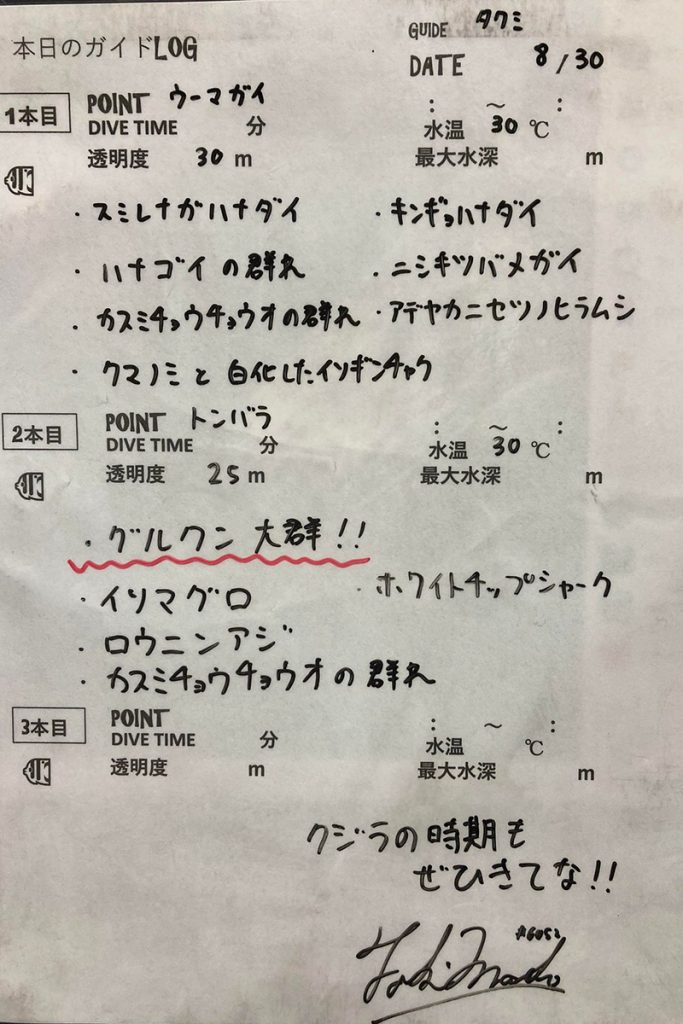 本日のガイドLOG
GUIDE タクミ
DATE 8/30
1本目 POINT ウーマガイ : ~ :
DIVE TIME 分 水温 30 ℃
透明度 30 m 最大水深 m
・スミレナガハナダイ ・キンギョハナダイ
・ハナゴイの群れ ・ニシキツバメガイ
・カスミチョウチョウオの群れ ・アデヤカニセツノヒラムシ
・クマノミと白化したイソギンチャク
2本目 POINT トンバラ : ~ :
DIVE TIME 分 水温 30 ℃
透明度 25 m 最大水深 m
・グルクン大群!!
・イソマグロ ・ホワイトチップシャーク
・ロウニンアジ
・カスミチョウチョウオの群れ
3本目 POINT : ~ :
DIVE TIME 分 水温 ℃
透明度 m 最大水深 m
クジラの時期も
ぜひきてな!!